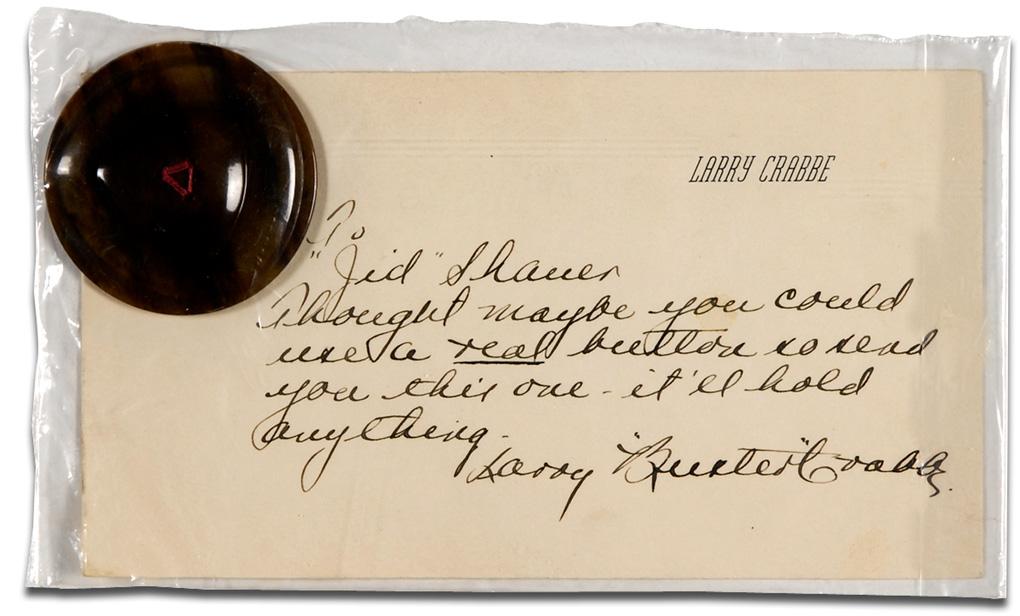 LARRY CRABBE
To
"Jid" Shauer
Thought maybe you could
use a real button so send
you this one - it'll hold
anything.
Larry "Buster" Crabbe.